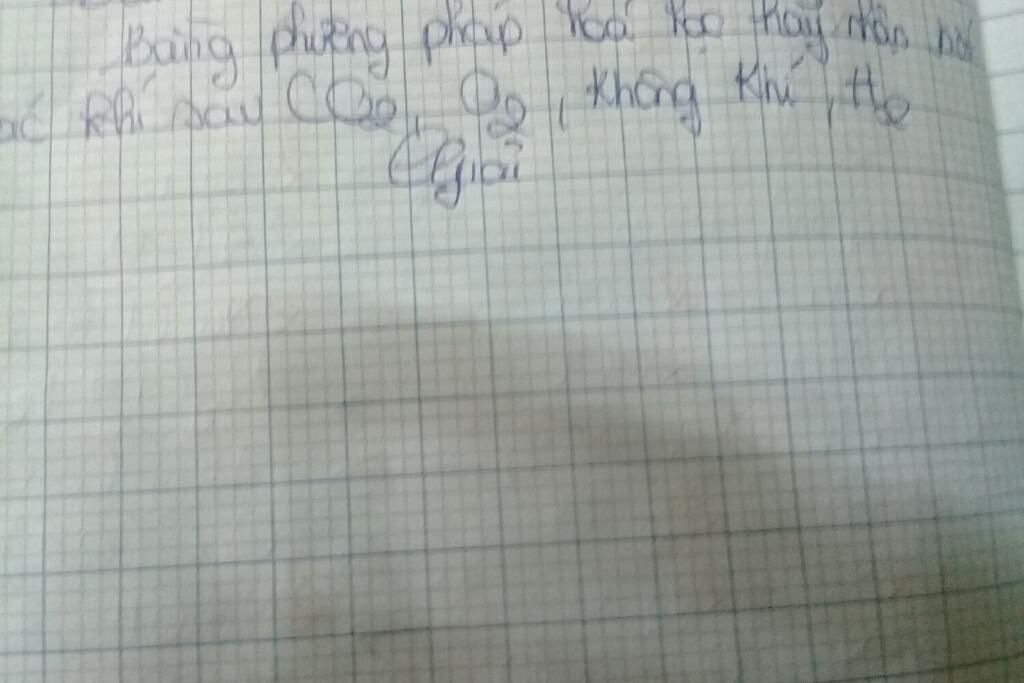 Bằng phương pháp hoá học hãy nhận
khí sau CO2, O2, không khí, H2
giải